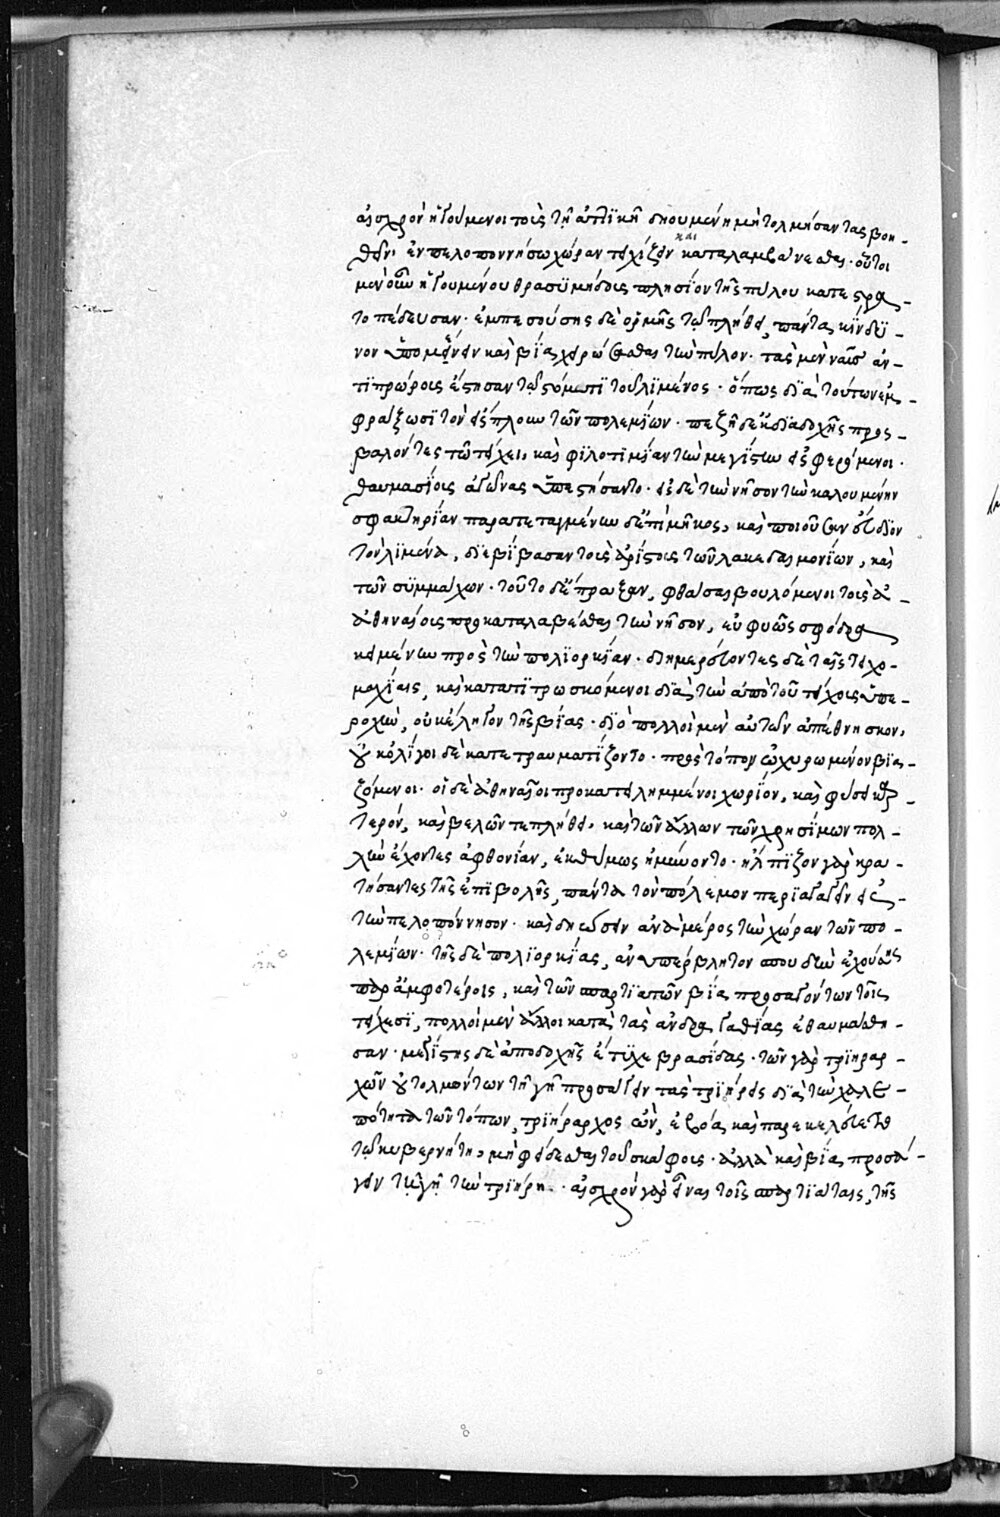 αἰσχρὸν ἡγούμενοι τοὺς τῇ ἀττικῇ δηουμένῃ μὴ τολμήσαντας βοη-
θεῖν· ἐν πελοποννήσω χώραν τειχίζειν καὶ καταλαμβάνεσθαι· οὗτοι
μὲν οὖν ἡγουμένου θρασυμήδους πλησίον τῆς πύλου κατεστρα-
τοπέδευσαν· ἐμπεσούσης δὲ ὁρμῆς τῷ πλήθει, πάντα κίνδυ-
νον ὑπομένειν καὶ βία χειρώσασθαι τὴν πύλον· τὰς μὲν ναῦς ἀν-
τιπρώρους ἔστησαν τῷ στόματι τοῦ λιμένος· ὅπως διὰ τούτων ἐμ-
φράξωσι τὸν εἴσπλουν τῶν πολεμίων· πεζῇ δὲ ἐκ διαδοχῆς προσ-
βαλόντες τῶ τείχει, καὶ φιλοτιμίαν τὴν μεγίστην εἰσφερόμενοι·
θαυμασίους ἀγῶνας ὑπεστήσαντο· εἰς δὲ τὴν νῆσον τὴν καλουμένην
σφακτηρίαν παρατεταγμένην δ' ἐπὶ μῆκος, καὶ ποιοῦσαν εὔδιον
τὸν λιμένα, διεβίβασαν τοὺς ἀρίστους τῶν λακεδαιμονίων, καὶ
τῶν συμμάχων· τοῦτο δ' ἔπραξαν, φθάσαι βουλόμενοι τοὺς ἀ-
ἀθηναίους προκαταλαβέσθαι τὴν νῆσον, εὐφυῶς σφόδρα
κειμένην πρὸς τὴν πολιορκίαν· διημερεύοντες δὲ ταῖς τειχο-
μαχίαις, καὶ κατατιτρωσκόμενοι διὰ τὴν ἀπὸ τοῦ τείχους ὑπε-
ροχὴν, οὐκ ἔληγον τῆς βίας· διὸ πολλοὶ μὲν αὐτῶν ἀπέθνησκον,
οὐκ ὀλίγοι δὲ κατετραυματίζοντο· πρὸς τόπον ὠχυρωμένον βια-
ζόμενοι· οἱ δὲ ἀθηναῖοι προκατειλημμένοι χωρίον, καὶ φύσει καρ-
τερόν, καὶ βελῶν τε πλήθει, καὶ τῶν ἄλλων τῶν χρησίμων πολ-
λὴν ἔχοντες ἀφθονίαν, ἐκθύμως ἠμύνοντο· ἤλπιζον γὰρ κρα-
τήσαντες τῆς ἐπιβολῆς, πάντα τὸν πόλεμον περιαγαγεῖν εἰς
τὴν πελοπόννησον· καὶ δῃώσειν ἀνὰ μέρος τὴν χώραν τῶν πο-
λεμίων· τῆς δὲ πολιορκίας, ἀνυπέρβλητον σπουδὴν ἐχούσης
παρ' ἀμφοτέροις, καὶ τῶν σπαρτιατῶν βία προσαγόντων τοῖς
τείχεσι, πολλοὶ μὲν ἄλλοι κατὰ τὰς ἀνδραγαθίας ἐθαυμάσθη-
σαν· μεγίστης δὲ ἀποδοχῆς ἔτυχε βρασίδας· τῶν γὰρ τριηραρ-
χῶν οὐ τολμώντων τῇ γῇ προσαγαγεῖν τὰς τριήρεις διὰ τὴν χαλε-
πότητα τῶν τόπων, τριήραρχος ὤν, ἐβόα καὶ παρεκελεύετο
τῷ κυβερνήτῃ, μὴ φείδεσθαι τοῦ σκάφους· ἀλλὰ καὶ βία προσά-
γειν τῇ γῇ τὴν τριήρη· αἰσχρὸν γὰρ εἶναι τοῖς σπαρτιάταις, τῆς